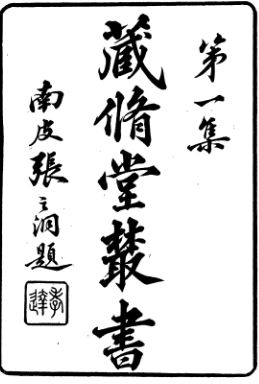 第一集
藏脩堂叢書
南皮張之洞題
孝達